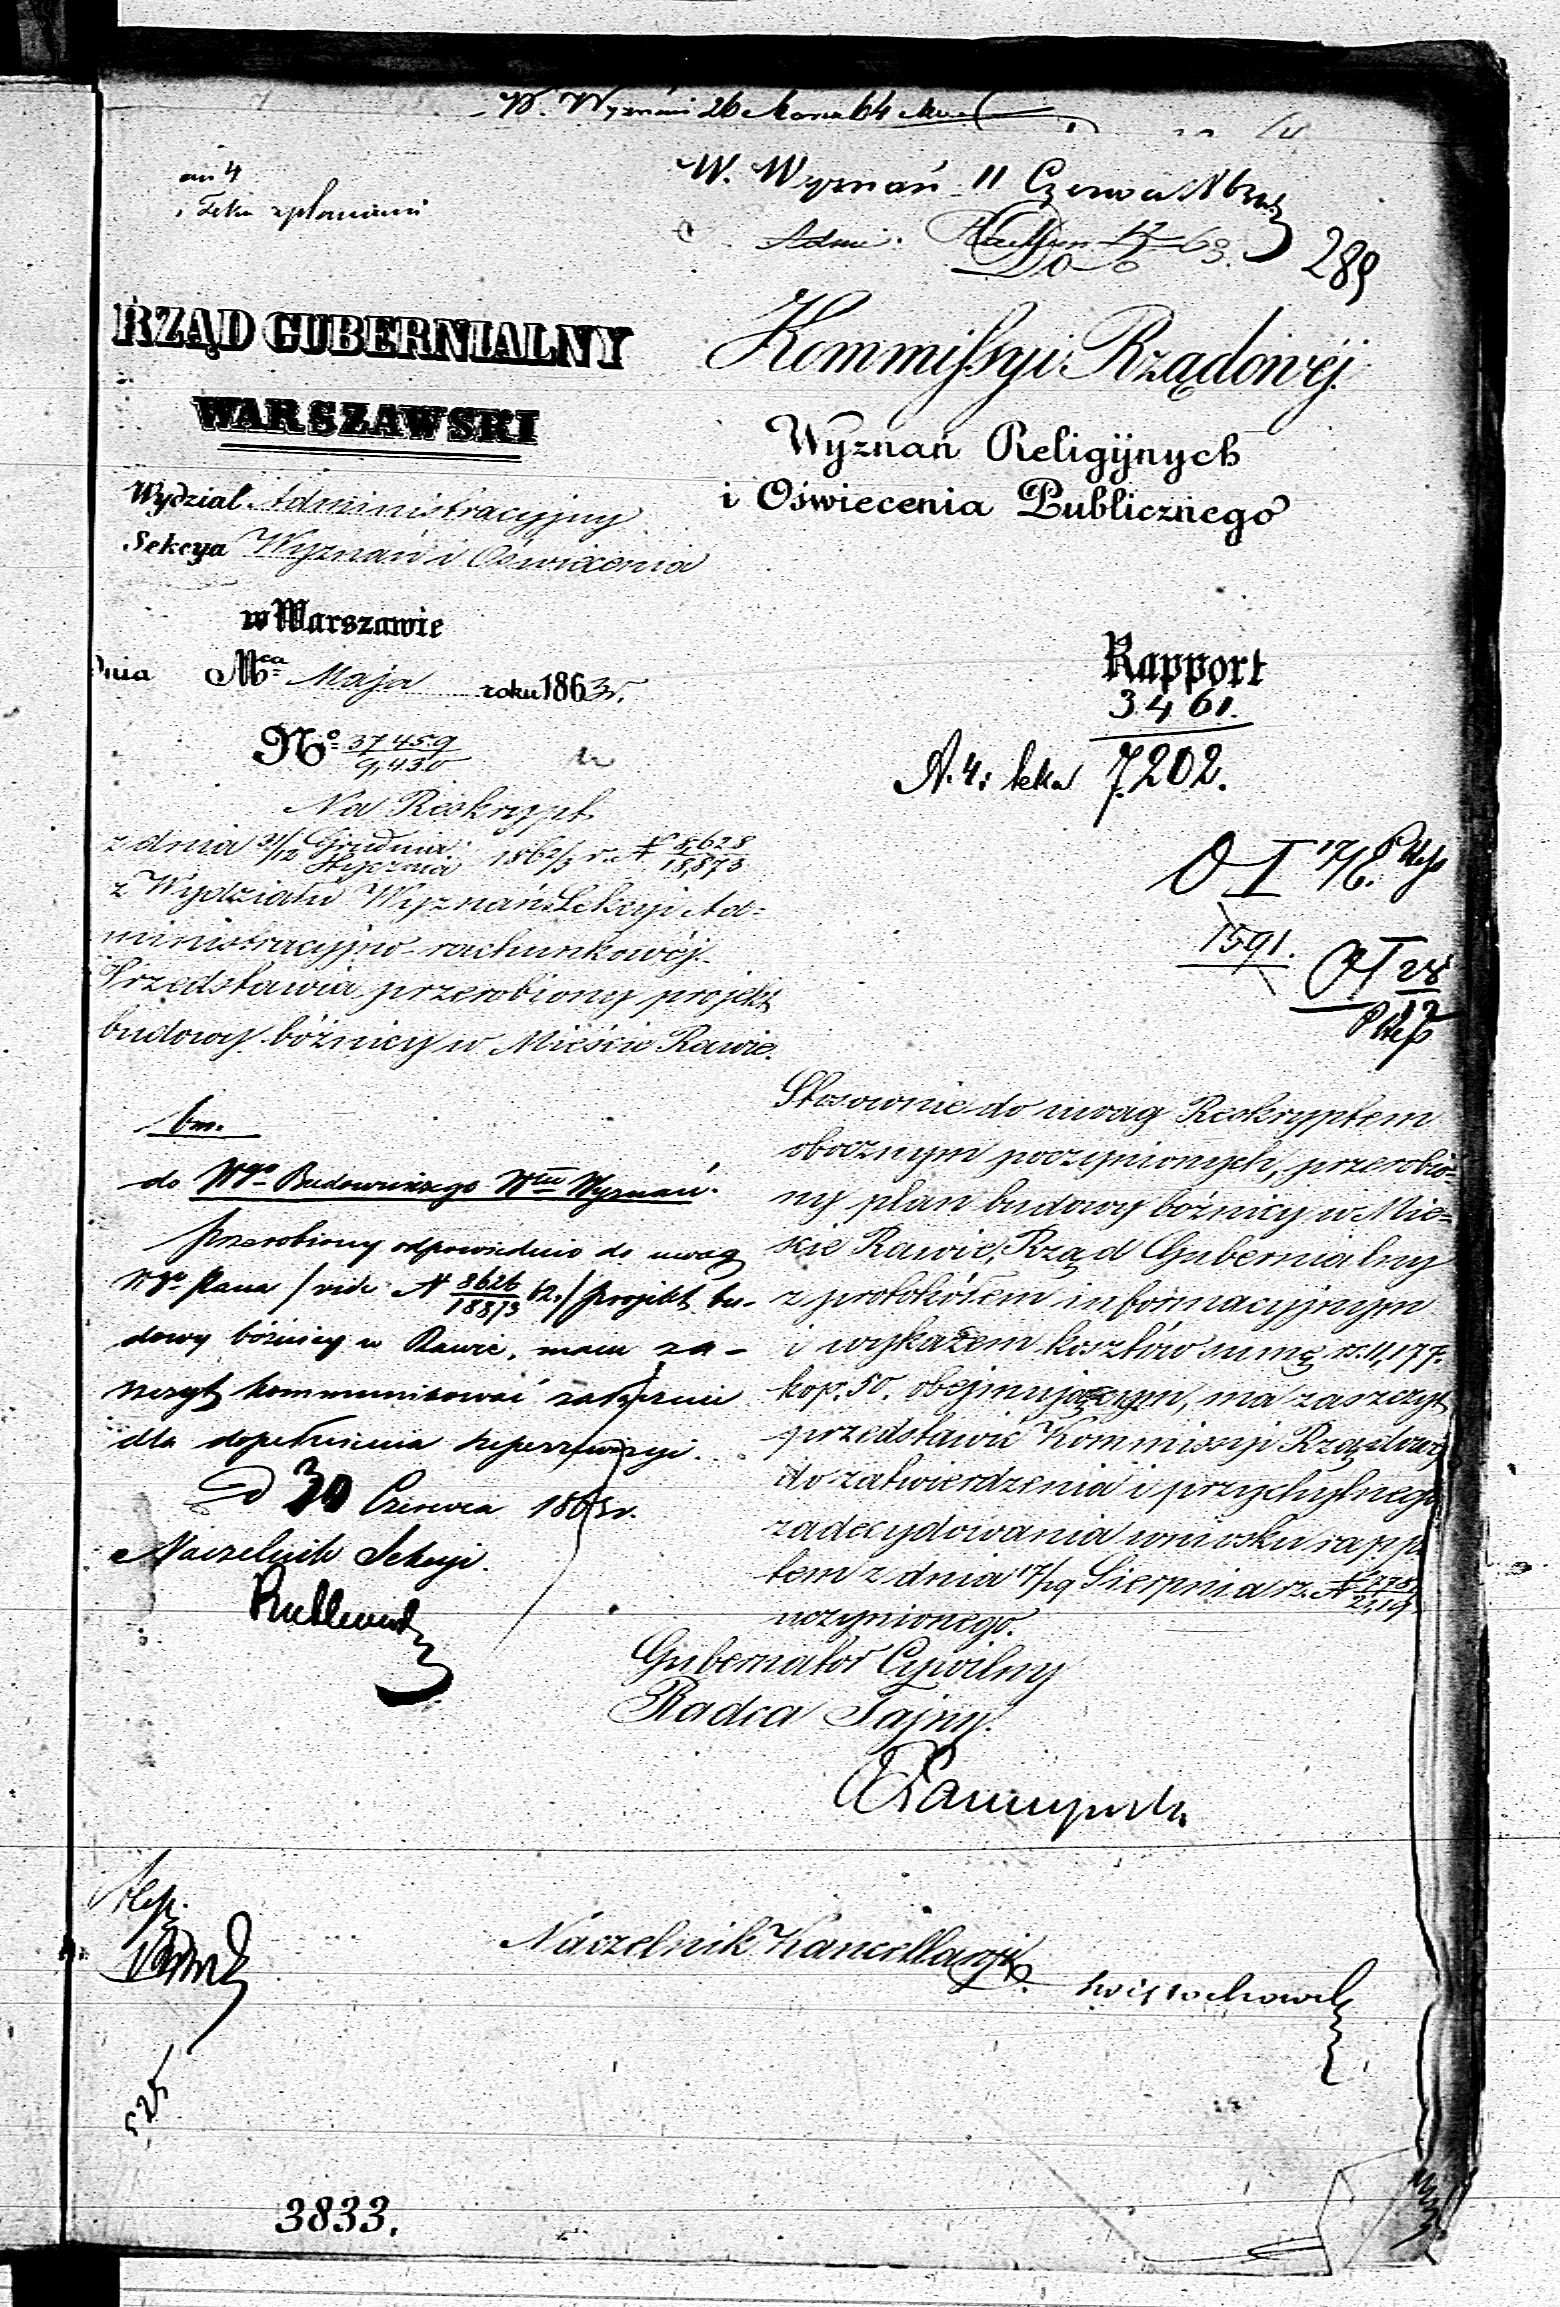 W. Wyznań 26 Marca 64
W. Wyznań 11 Czerwca
an 4
Adm:
289
Do
RZĄD GUBERNIALNY
WARSZAWSKI
Kommissyi Rządowéj
Wyznań Religijnych
i Oświecenia Publicznego
Wydział Administracyjny
Sekcya Wyznań i Oświecenia
w Warszawie
Dnia Mca Maja roku 1863 r.
No 37459/9,430
Rapport
3461.
A. 4: teka 7202.
Na Reskrypt
z dnia 31/12 Grudnia/Stycznia 1862/3 r. N 8,628/18,873
z Wydziału Wyznań Sekcyi Ad=
ministracyjno-rachunkowéj.
Przedstawia przerobiony projekt
budowy bóżnicy w Mieście Rawie.
17/6.
1591.
28/12
Stosownie do uwag Reskryptem
obocznym poczynionych, przerobio=
ny plan budowy bóżnicy w Mie=
ście Rawie, Rząd Gubernialny
z protokółem informacyjnym
i wykazem kosztów sumę rs. 11,177.
kop. 50. obejmującym, ma zaszczyt
przedstawić Kommissyi Rządowéj
do zatwierdzenia i przychylnego
zadecydowania wniosku rappor
tem z dnia 17/29 Sierpnia r.z. N
uczynionego.
Gubernator Cywilny
Radca Tajny.
bm.
do Wgo Budowniczego Włu Wyznań.
Przerobiony odpowiednio do uwag
Wgo Pana / vide N 8626/18873 62./ projekt bu-
dowy bóżnicy w Rawie, mam za-
szczyt kommunikować załącznie
dla dopełnienia superrewizyi.
d 30 Czerwca 1863 r.
Naczelnik Sekcyi.
Naczelnik Kancellaryi
525
3833.